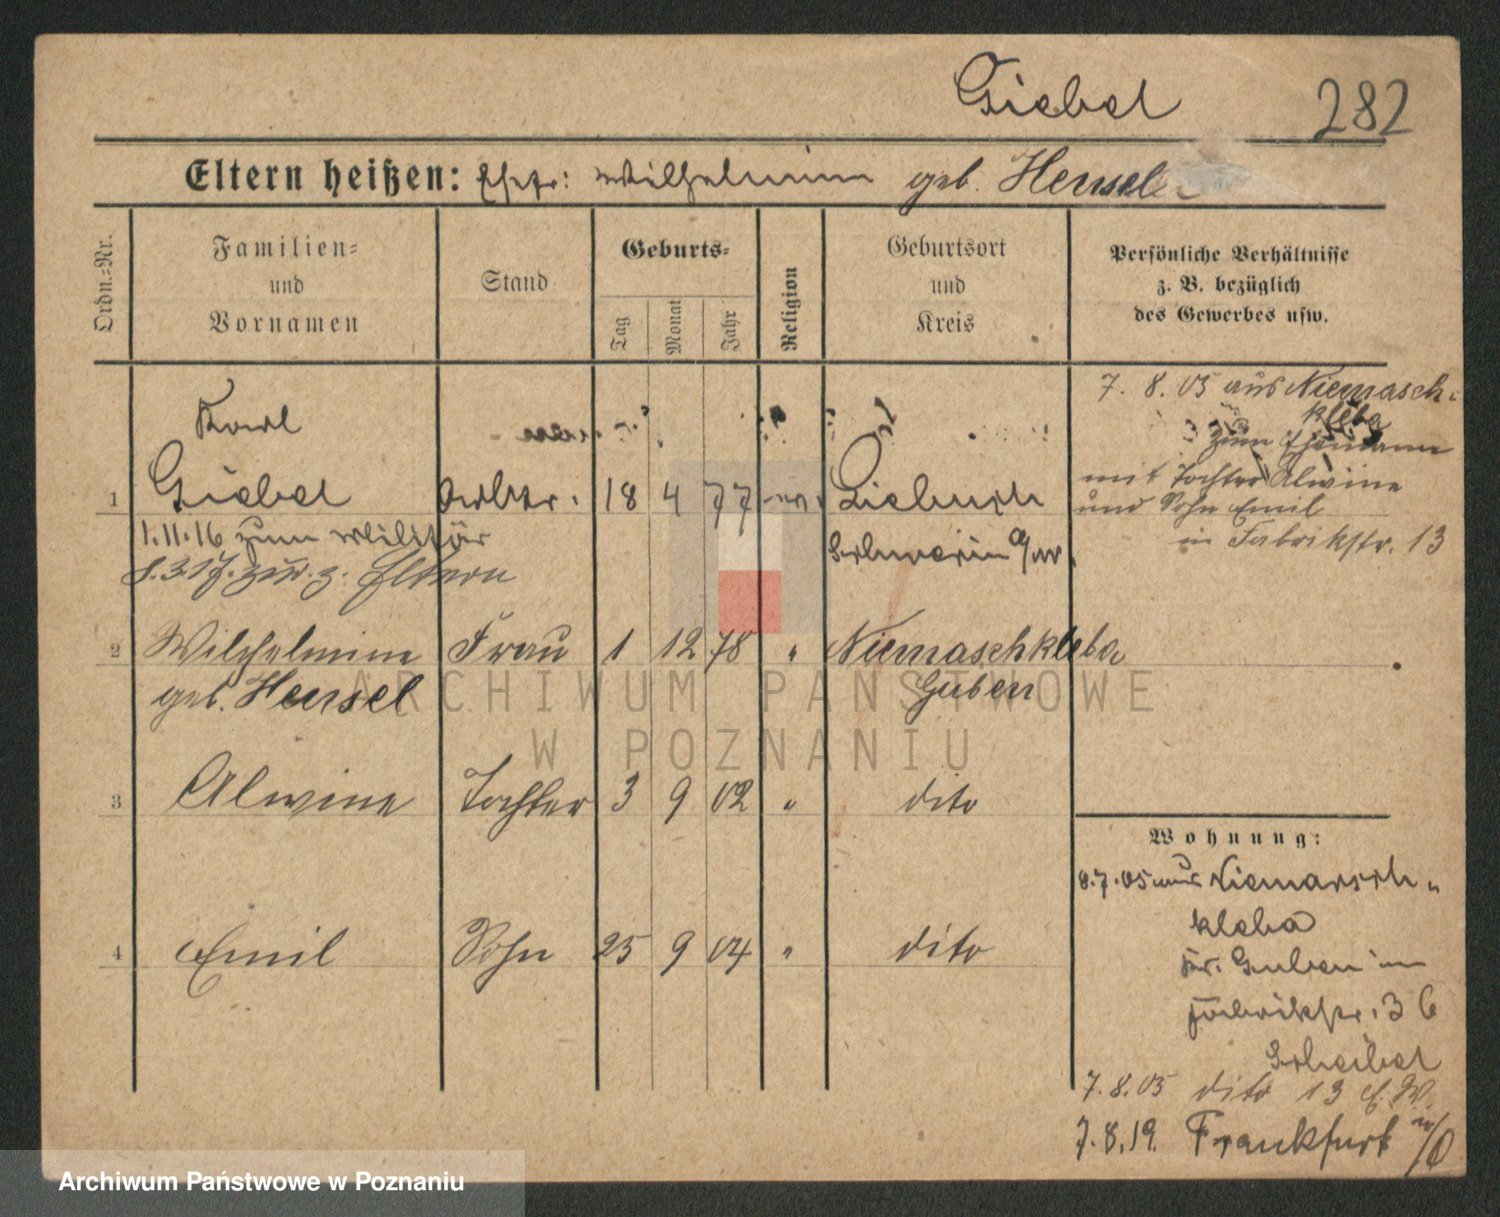 Giebel 282
Eltern heißen: Ehefr: Wilhelmine geb. Hensel
Ordn.=Nr.
Familien=
und
Vornamen
Stand
Geburts=
Tag
Monat
Jahr
Religion
Geburtsort
und
Kreis
Persönliche Verhältnisse
z. B. bezüglich
des Gewerbes usw.
Karl
1 Giebel Arbtr. 18 4 77 ev. Liebuch
Schwerin a/W.
1.11.16 zum Militär
8.3.17. zur. z. Eltern
2 Wilhelmine Frau 1 12 78 " Niemaschkleba
geb. Hensel Guben
3 Alwine Tochter 3 9 02 " dito
4 Emil Sohn 25 9 04 " dito
7. 8. 05 aus Niemasch-
kleba
zum Ehemann
mit Tochter Alwine
und Sohn Emil
in Fabrikstr. 13
Wohnung:
8.7.05 aus Niemarsch-
kleba
Kr. Guben in
Fabrikstr. 36
Scheibel
7.8.05 dito 13 E.W.
7.8.19. Frankfurt a/O
ARCHIWUM PAŃSTWOWE
W POZNANIU
Archiwum Państwowe w Poznaniu